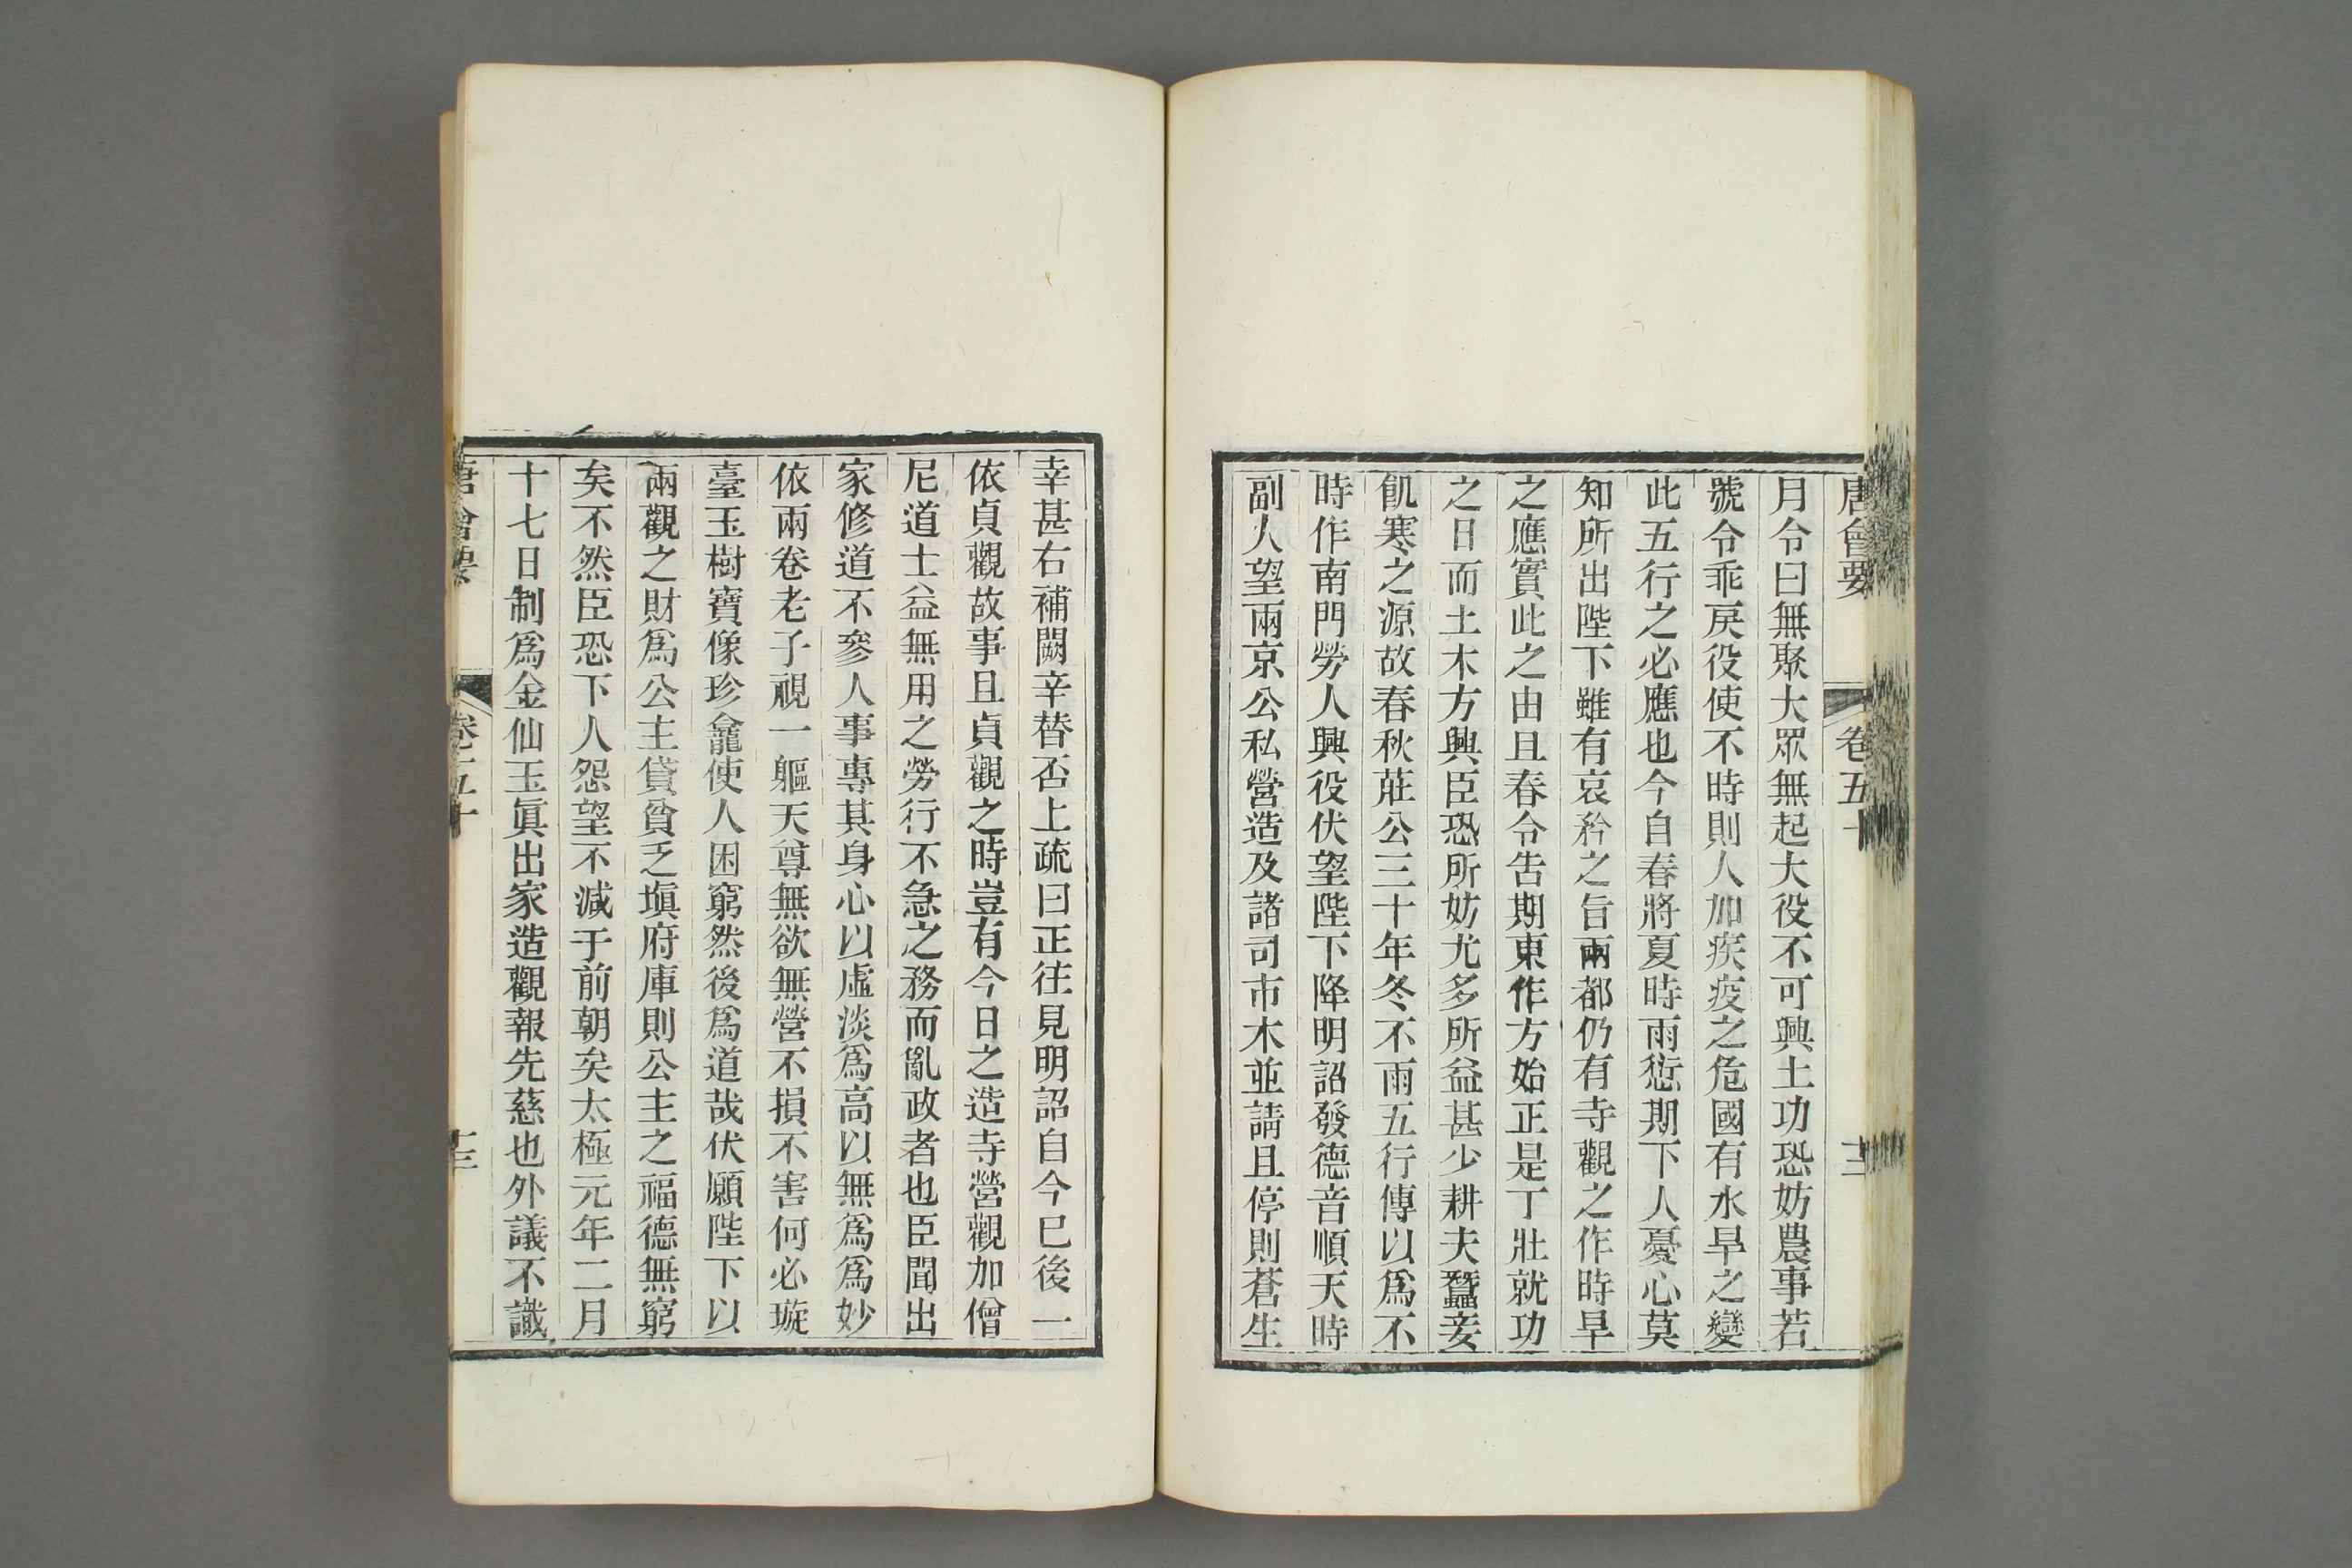 唐會要 卷五十 十二
月令曰無聚大眾無起大役不可興土功恐妨農事若
號令乖戾役使不時則人加疾疫之危國有水旱之變
此五行之必應也今自春將夏時雨愆期下人憂心莫
知所出陛下雖有哀矜之旨兩都仍有寺觀之作時旱
之應實此之由且春令告期東作方始正是丁壯就功
之日而土木方興臣恐所妨尤多所益甚少耕夫蠶妾
飢寒之源故春秋莊公三十年冬不雨五行傳以爲不
時作南門勞人興役伏望陛下降明詔發德音順天時
副人望兩京公私營造及諸司市木並請且停則蒼生
幸甚右補闕辛替否上疏曰正往見明詔自今已後一
依貞觀故事且貞觀之時豈有今日之造寺營觀加僧
尼道士益無用之勞行不急之務而亂政者也臣聞出
家修道不參人事專其身心以虛淡爲高以無爲爲妙
依兩卷老子視一軀天尊無欲無營不損不害何必璇
臺玉樹寶像珍龕使人困窮然後爲道哉伏願陛下以
兩觀之財爲公主貸貧乏塡府庫則公主之福德無窮
矣不然臣恐下人怨望不減于前朝矣太極元年二月
十七日制爲金仙玉眞出家造觀報先慈也外議不識
唐會要 卷五十 十三